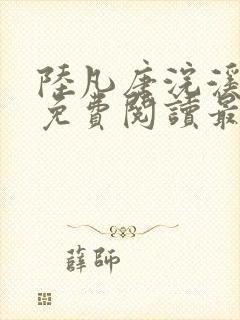 陸凡唐浣溪
免費閱讀最
薛師